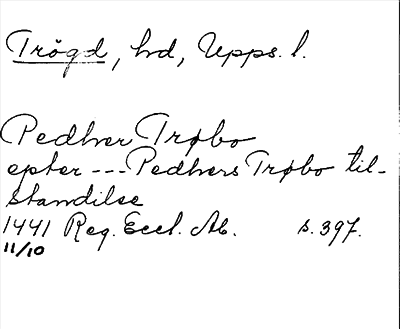 Trögd, hd, Upps. l.
Pedher Trøbo
epter --- Pedhers Trøbo til-
standilse
1441 Reg. Eccl. Ab. s. 397.
11/10